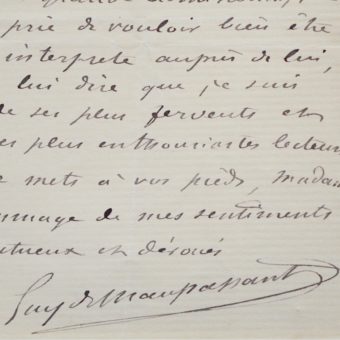 prie de vouloir bien être
interprete auprès de lui,
lui dire que je suis
de ses plus fervents et
es plus enthousiastes lecteur
mets à vos pieds, madam
ommage de mes sentiments
tueux et dévoués
Guy de Maupassant